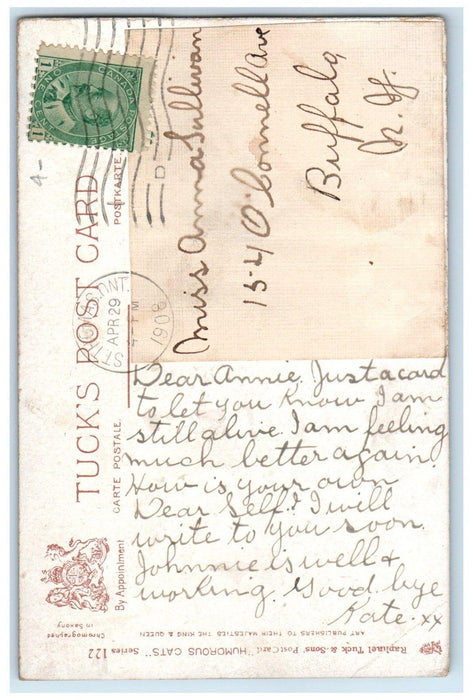 CANADA POSTAGE
ONE CENT
TUCK'S POST CARD
CARTE POSTALE.
POSTKARTE.
By Appointment
APR 29
1908
ONT.
Miss Anna Sullivan
154 O'Connell Ave
Buffalo
N. Y.
Dear Annie. Just a card
to let you know I am
still alive. I am feeling
much better again.
How is your own
Dear Self? I will
write to you soon.
Johnnie is well &
working. Good. bye
Kate. xx
Raphael Tuck & Sons' PostCard "HUMOROUS CATS" Series 122
ART PUBLISHERS TO THEIR MAJESTIES THE KING & QUEEN.
Chromographed
in Saxony
4-